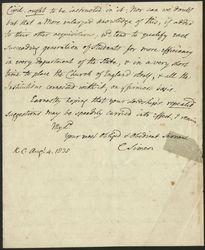 Civil, ought to be instructed in it. Nor can we doubt
but that a more enlarged knowledge of this, if added
to their other acquisitions, wd tend to qualify each
succeeding generation of Students for more efficiency
in every department of the State, & in a very short
time to place the Church of England itself, & all the
Institutions connected with it, on a firmer basis.
Earnestly hoping that your Lordship's repeated
suggestions may be speedily carried into effect, I remain
My Ld
Your most Obliged & Obedient Servant
C. Simeon
K.C. Augt 4. 1835